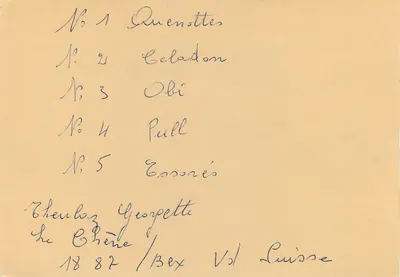 No 1 Quenottes
No 2 Celadon
No 3 Obi
No 4 Pull
No 5 Essorés
Theulaz Georgette
Le Chêne
1882 /Bex Vd Suisse